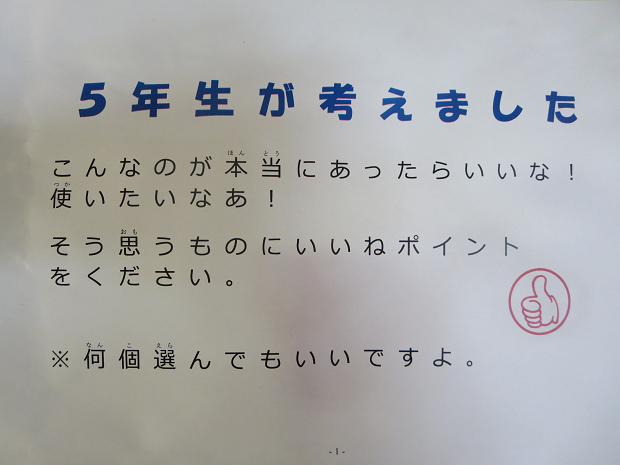 5年生が考えました
こんなのが本当にあったらいいな！
使いたいなあ！
そう思うものにいいねポイント
をください。
※何個選んでもいいですよ。
-1-